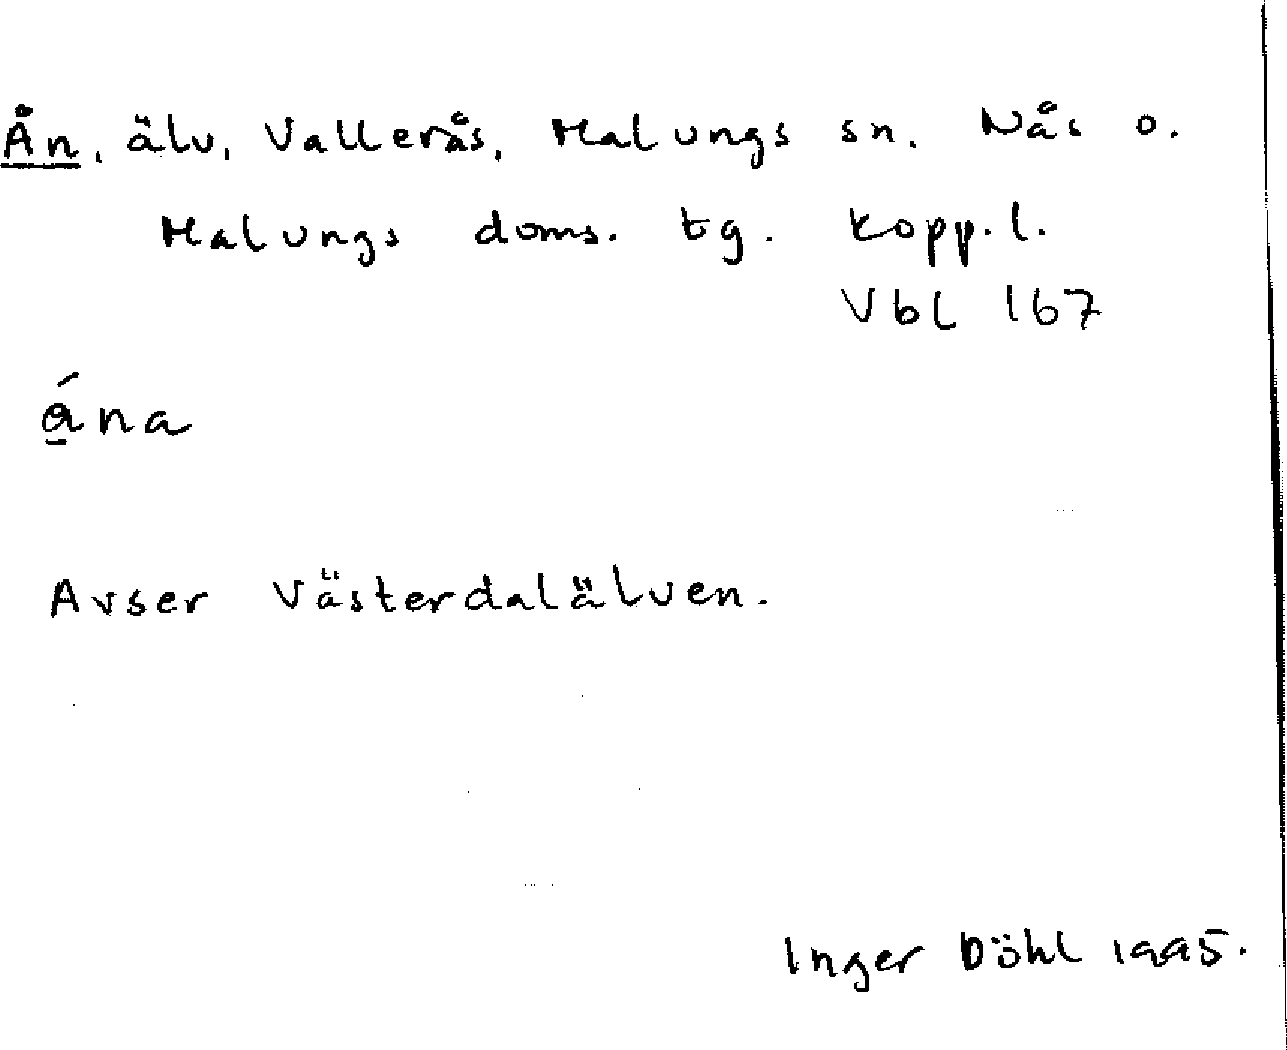 Ån, älv, Vallerås, Malungs sn. Nås o.
Malungs doms. tg. Kopp.l.
Vbl 167
ą́na
Avser Västerdalälven.
Inger Döhl 1995.